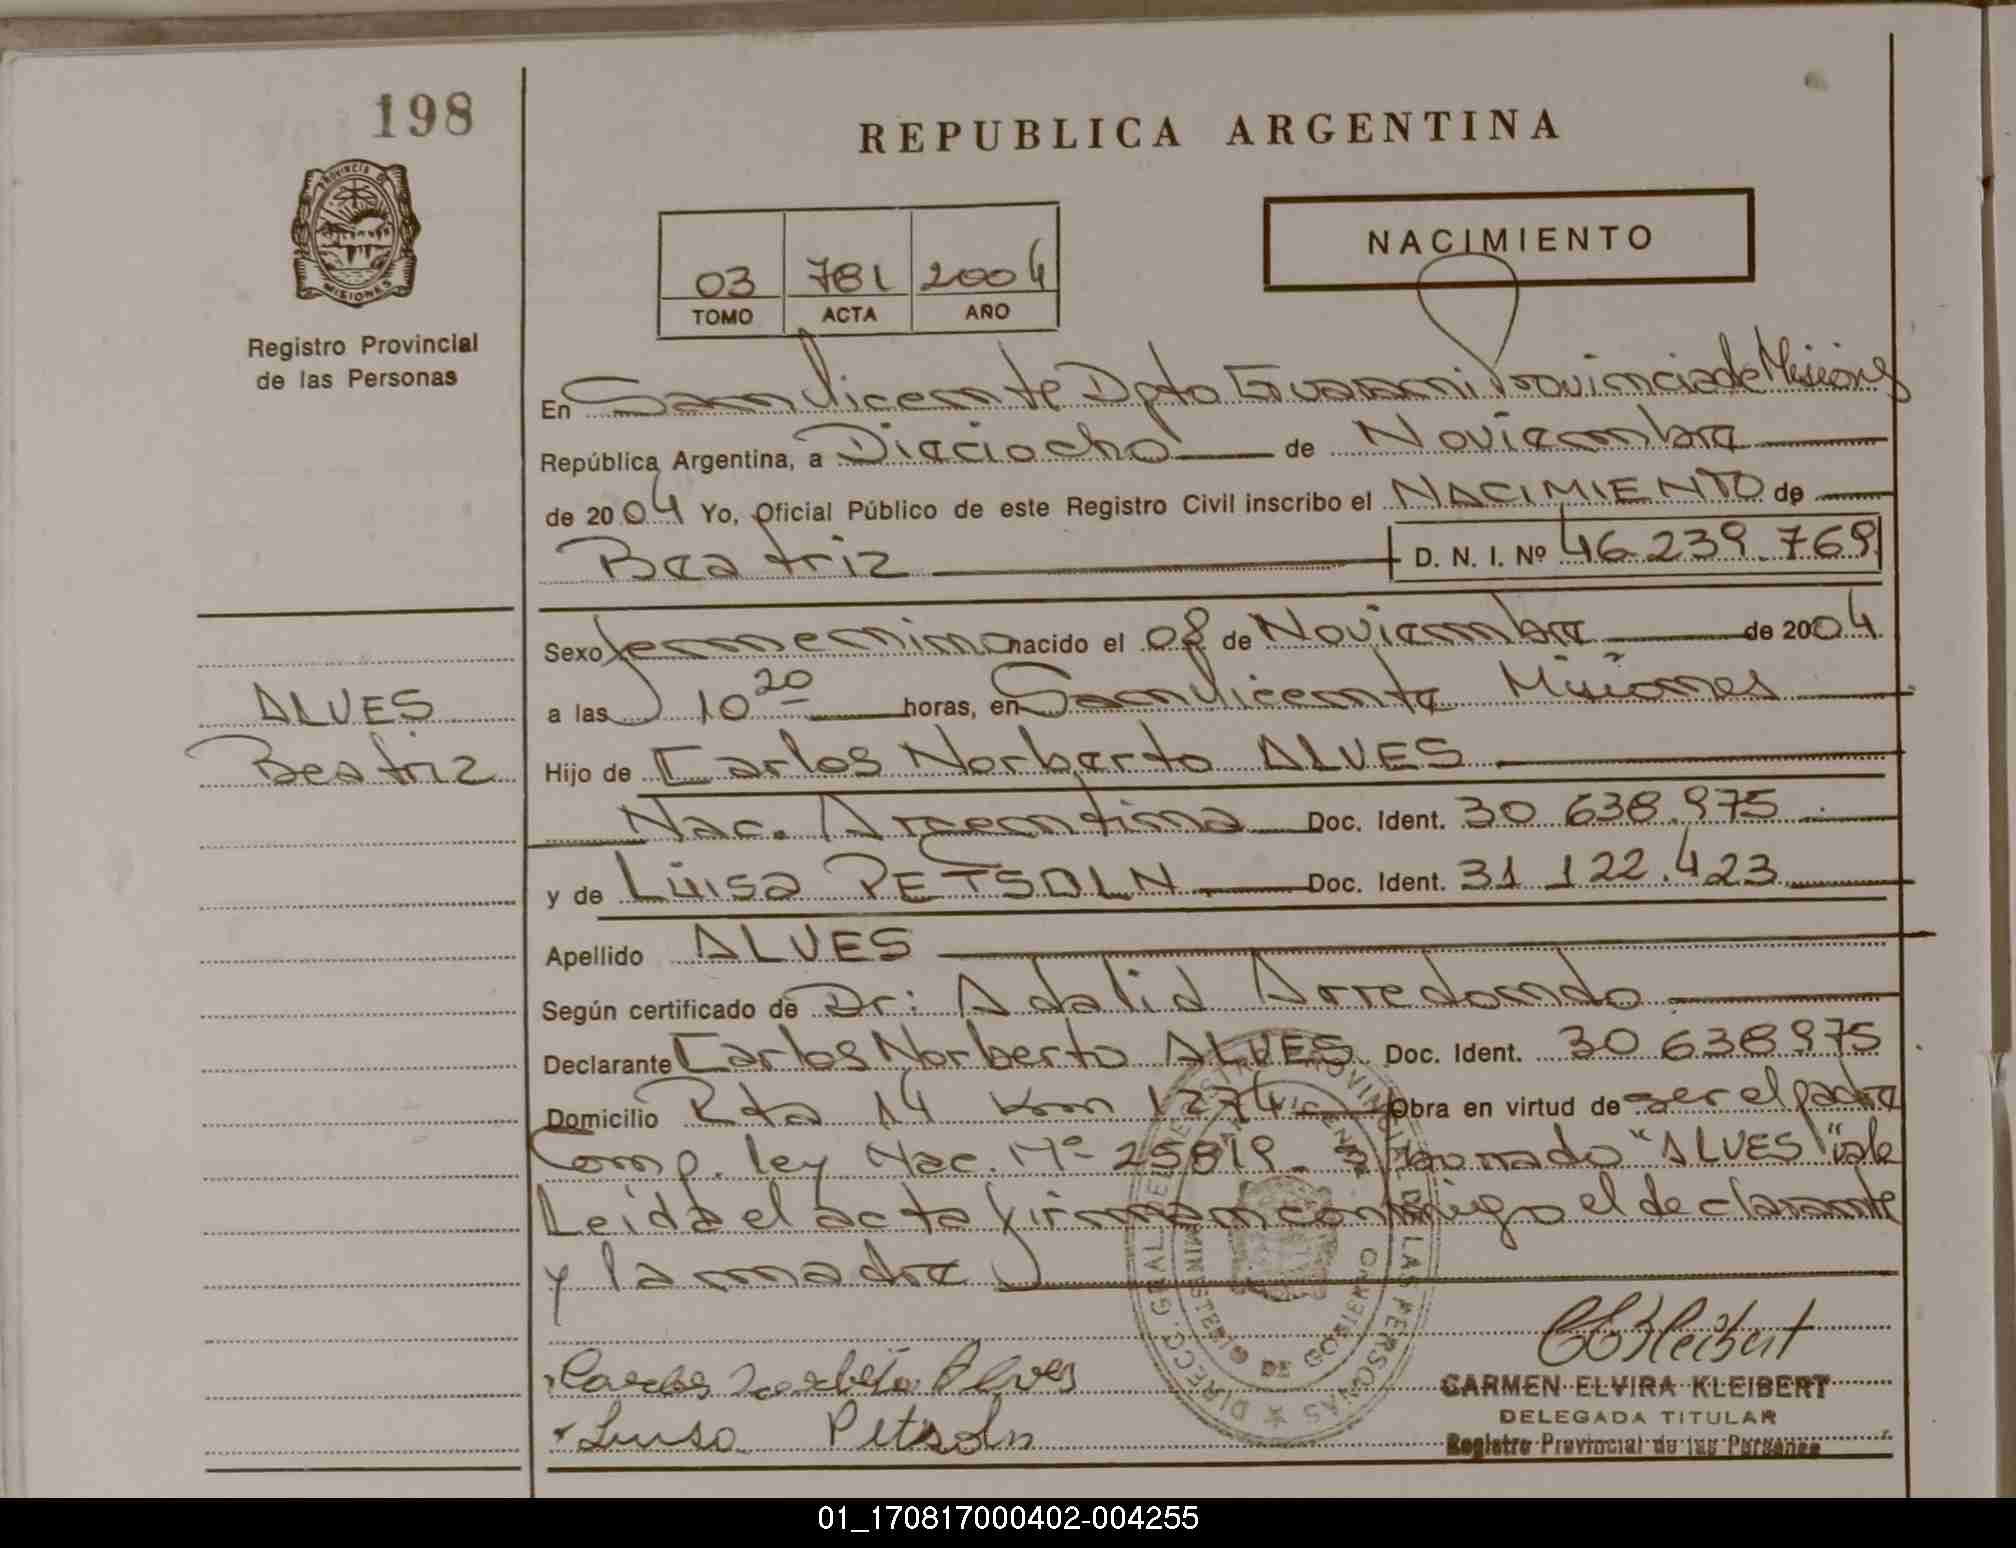 198
PROVINCIA DE
MISIONES
Registro Provincial
de las Personas
REPUBLICA ARGENTINA
03 781 2004
TOMO ACTA AÑO
NACIMIENTO
En San Vicente Dpto Guarani Provincia de Misiones
República Argentina, a Dieciocho de Noviembre
de 2004 Yo, Oficial Público de este Registro Civil inscribo el NACIMIENTO de
Beatriz D. N. I. Nº 46.239.769
Sexo femenino nacido el 08 de Noviembre de 2004
a las 10 20 horas, en San Vicente Misiones
ALVES
Beatriz
Hijo de Carlos Norberto ALVES
Nac. Argentina Doc. Ident. 30 638.975
y de Luisa PETSOLN Doc. Ident. 31 122.423
Apellido ALVES
Según certificado de Dr: Adalid Arredondo
Declarante Carlos Norberto ALVES Doc. Ident. 30 638975
Domicilio Rta 14 Km 1274 Obra en virtud de ser el padre
Comp. ley Nac. Nº 25819. S/borrado "ALVES" vale
Leida el acta firman conmigo el declarante
y la madre
DIRECC. GRAL. DEL REGISTRO PROVINCIAL DE LAS PERSONAS
MINISTERIO DE GOBIERNO
Carlos Norberto Alves
Luisa Petsoln
CEKleibert
CARMEN ELVIRA KLEIBERT
DELEGADA TITULAR
Registro Provincial de las Personas
01_170817000402-004255